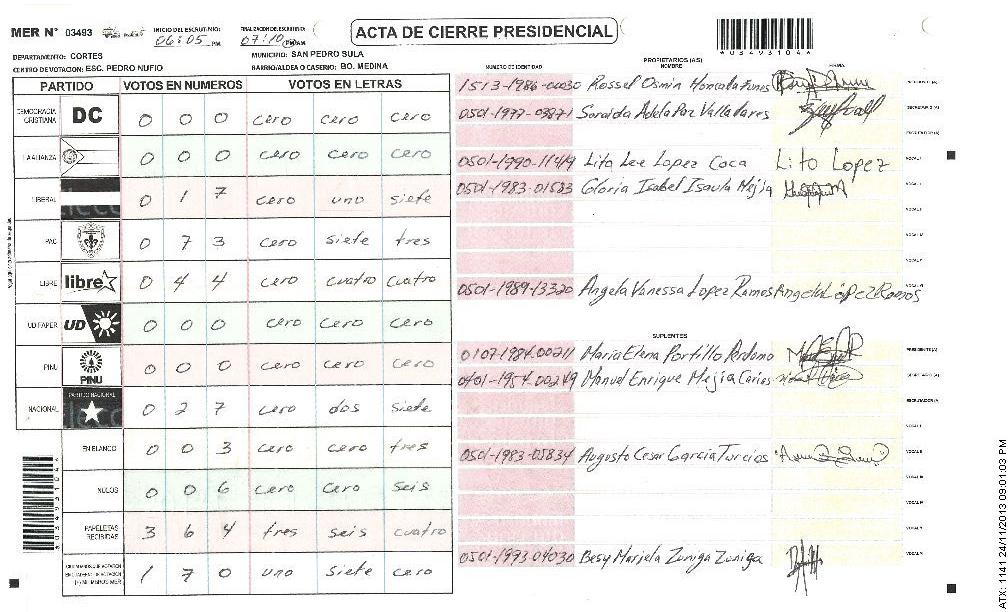 MER N° 03493
INICIO DEL ESCRUTINIO: 06:05 PM
FINALIZACION DE ESCRUTINIO: 07:10 PM AM
ACTA DE CIERRE PRESIDENCIAL
*03493104*
DEPARTAMENTO: CORTES
MUNICIPIO: SAN PEDRO SULA
CENTRO DE VOTACION: ESC. PEDRO NUFIO
BARRIO/ALDEA O CASERIO: BO. MEDINA
PARTIDO VOTOS EN NUMEROS VOTOS EN LETRAS
DEMOCRACIA CRISTIANA DC 0 0 0 cero cero cero
LA ALIANZA 0 0 0 cero cero cero
LIBERAL 0 1 7 cero uno siete
PAC 0 7 3 cero siete tres
LIBRE libre 0 4 4 cero cuatro cuatro
UD FAPER UD 0 0 0 cero cero cero
PINU PINU 0 0 0 cero cero cero
NACIONAL PARTIDO NACIONAL 0 2 7 cero dos siete
EN BLANCO 0 0 3 cero cero tres
NULOS 0 0 6 cero cero seis
PAPELETAS RECIBIDAS 3 6 4 tres seis cuatro
1 7 0 uno siete cero
NUMERO DE IDENTIDAD PROPIETARIOS (AS) NOMBRE FIRMA
1513-1986-00030 Rossel Osmin Honcada Funes PRESIDENTE (A)
0501-1977-03871 Soraida Adela Paz Valladares SECRETARIO (A)
ESCRUTADOR (A)
0501-1990-11419 Lito Lee Lopez Coca Lito Lopez VOCAL I
0501-1983-01583 Gloria Isabel Isaula Mejia
0501-1989-13320 Angela Vanessa Lopez Ramos Angela López Ramos
SUPLENTES
0107-1984-00211 Maria Elena Portillo Perdomo PRESIDENTE (A)
0401-1954-00249 Manuel Enrique Mejia Carias SECRETARIO (A)
ESCRUTADOR (A)
VOCAL I
0501-1983-05834 Augusto Cesar Garcia Turcios
0501-1993-04030 Besy Mariela Zuniga Zuniga
*03493104*
ATX: 1141 24/11/2013 09:01:03 PM